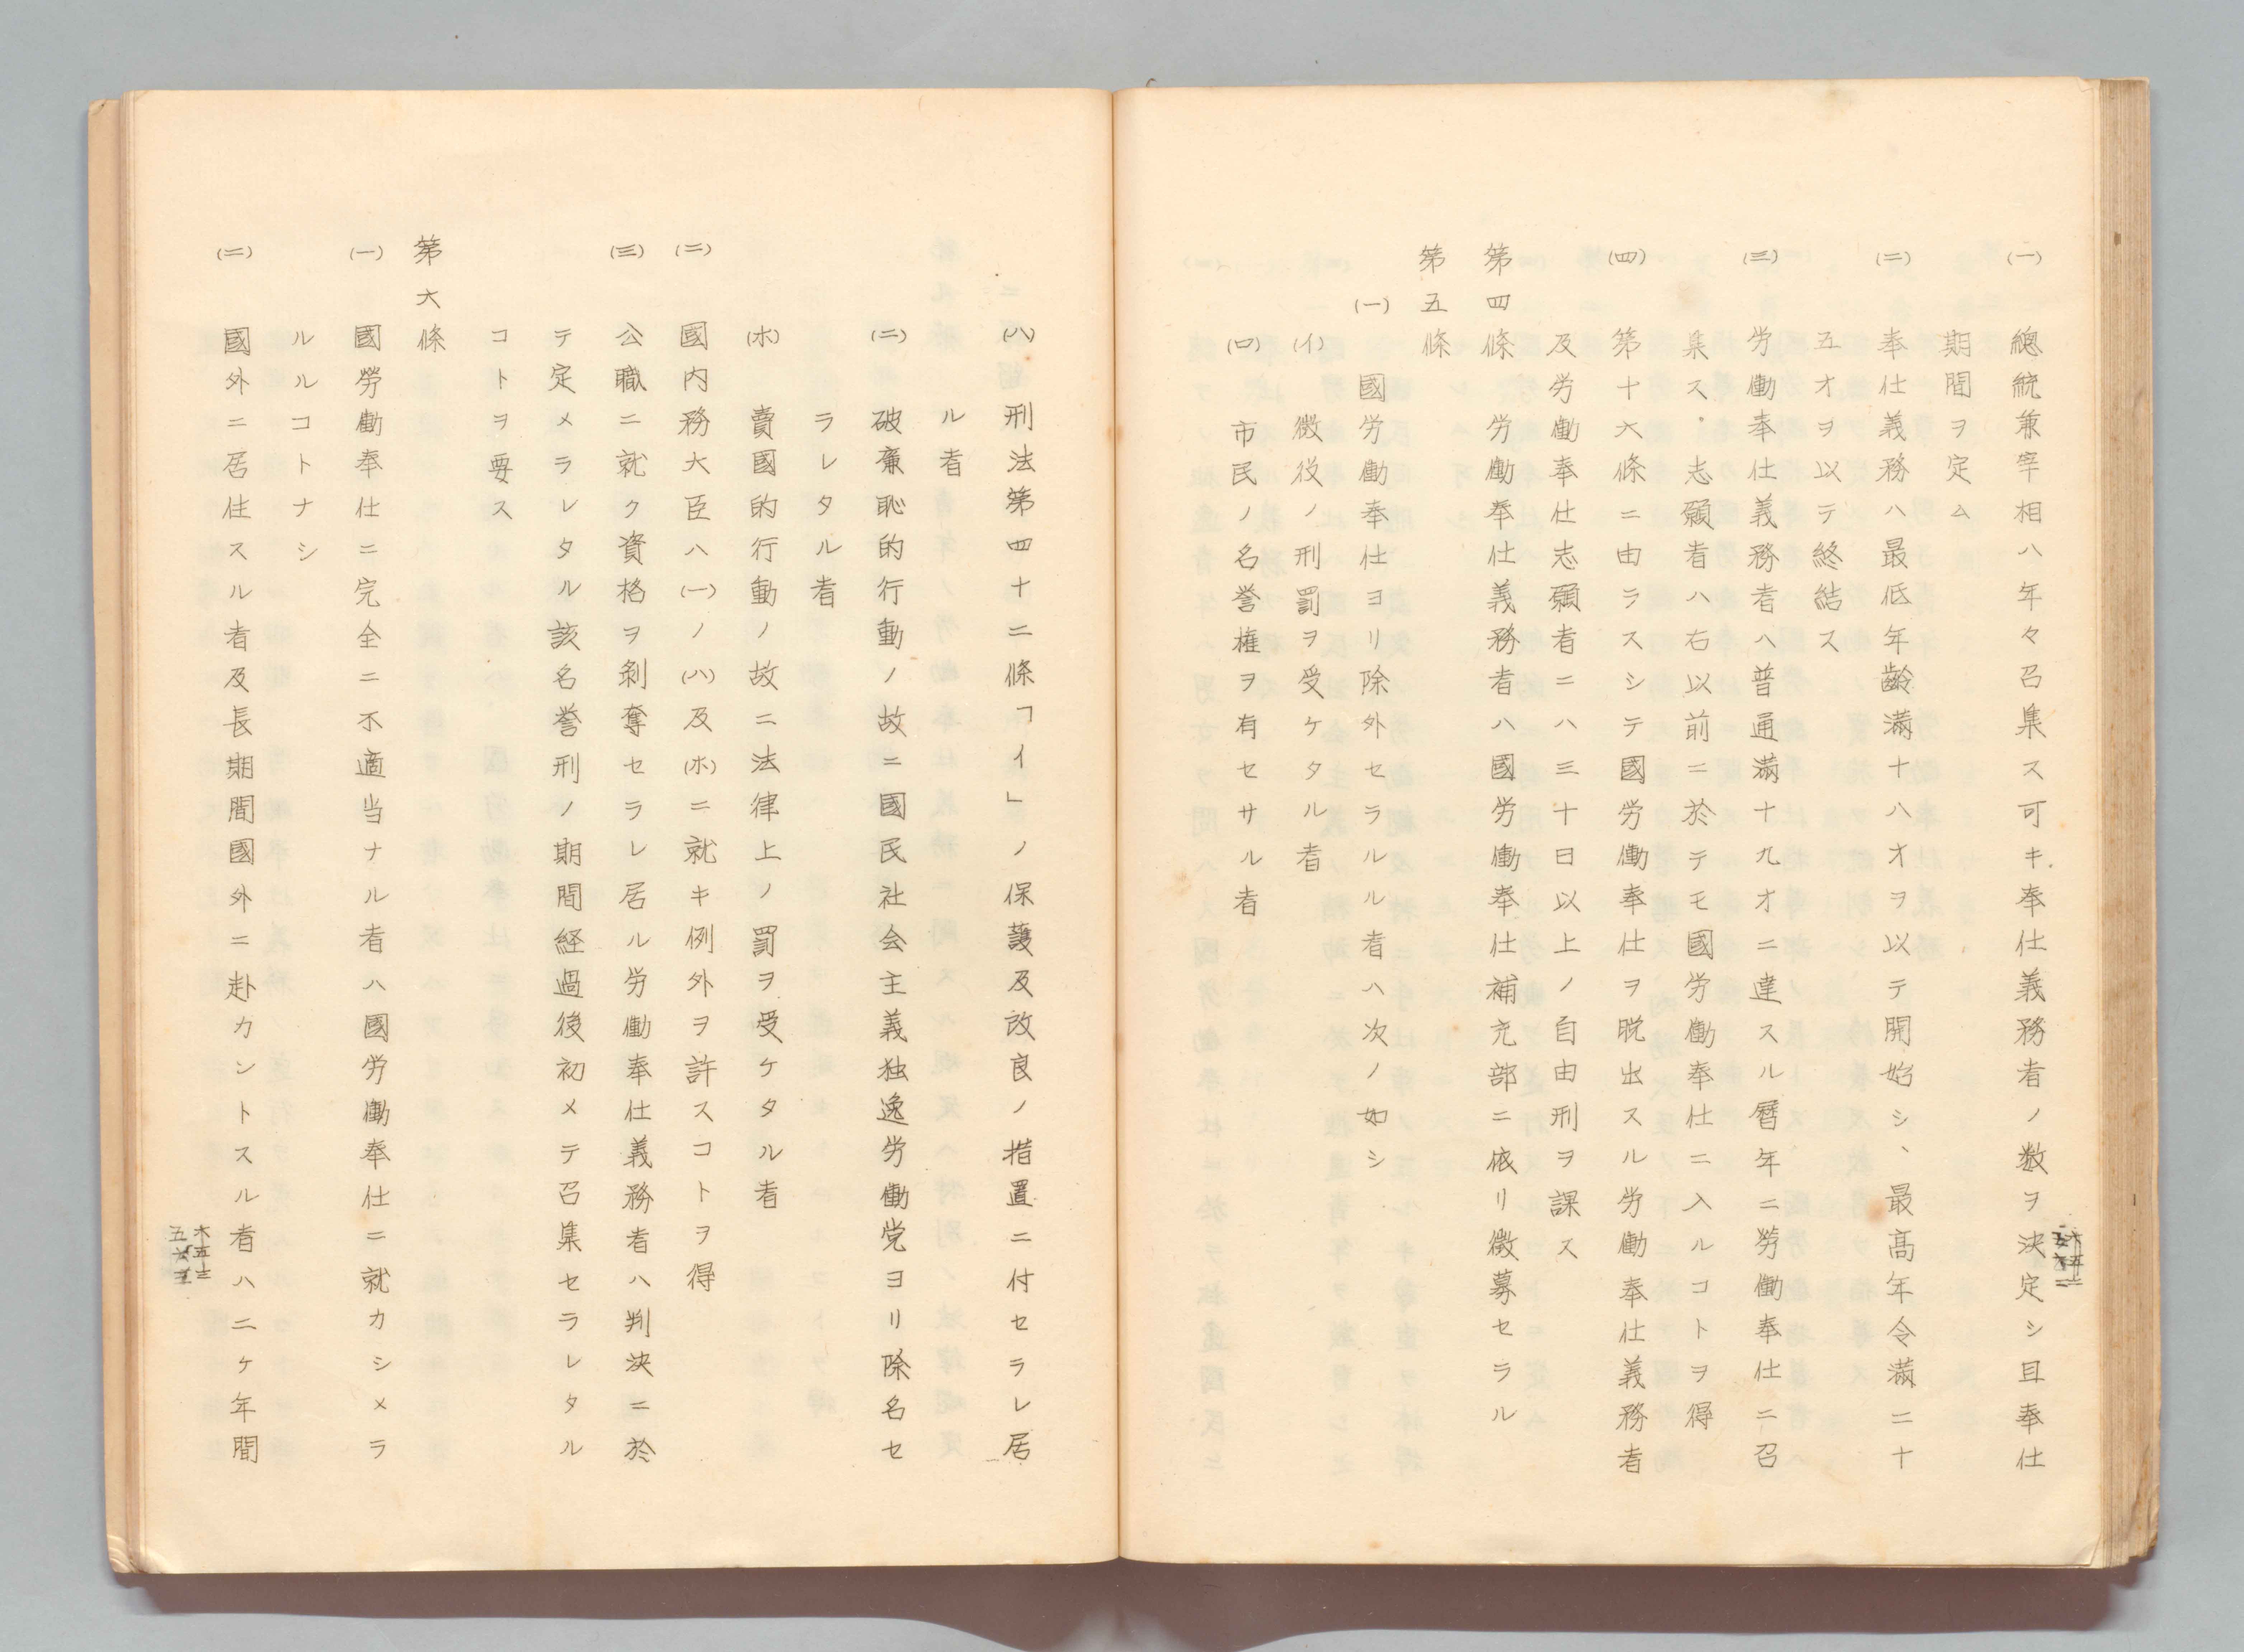 (一) 總統兼宰相ハ年々召集ス可キ奉仕義務者ノ数ヲ決定シ且奉仕
期間ヲ定ム
(二) 奉仕義務ハ最低年齡満十八才ヲ以テ開始シ、最高年令満二十
五才ヲ以テ終結ス
(三) 労働奉仕義務者ハ普通満十九才ニ達スル暦年ニ勞働奉仕ニ召
集ス・志願者ハ右以前ニ於テモ國労働奉仕ニ入ルコトヲ得
(四) 第十六條ニ由ラスシテ國労働奉仕ヲ脱出スル労働奉仕義務者
及労働奉仕志願者ニハ三十日以上ノ自由刑ヲ課ス
第四條 労働奉仕義務者ハ國労働奉仕補充部ニ依リ徴募セラル
第五條
(一) 國労働奉仕ヨリ除外セラルル者ハ次ノ如シ
(イ) 徴役ノ刑罰ヲ受ケタル者
(ロ) 市民ノ名誉権ヲ有セサル者
(ハ) 刑法第四十二條「イ」ノ保護及改良ノ措置ニ付セラレ居
ル者
(ニ) 破廉恥的行動ノ故ニ國民社会主義独逸労働党ヨリ除名セ
ラレタル者
(ホ) 賣國的行動ノ故ニ法律上ノ罰ヲ受ケタル者
(二) 國内務大臣ハ(一)ノ(ハ)及(ホ)ニ就キ例外ヲ許スコトヲ得
(三) 公職ニ就ク資格ヲ剥奪セラレ居ル労働奉仕義務者ハ判決ニ於
テ定メラレタル該名誉刑ノ期間経過後初メテ召集セラレタル
コトヲ要ス
第六條
(一) 國勞働奉仕ニ完全ニ不適当ナル者ハ國労働奉仕ニ就カシメラ
ルルコトナシ
(二) 國外ニ居住スル者及長期間國外ニ赴カントスル者ハ二ケ年間